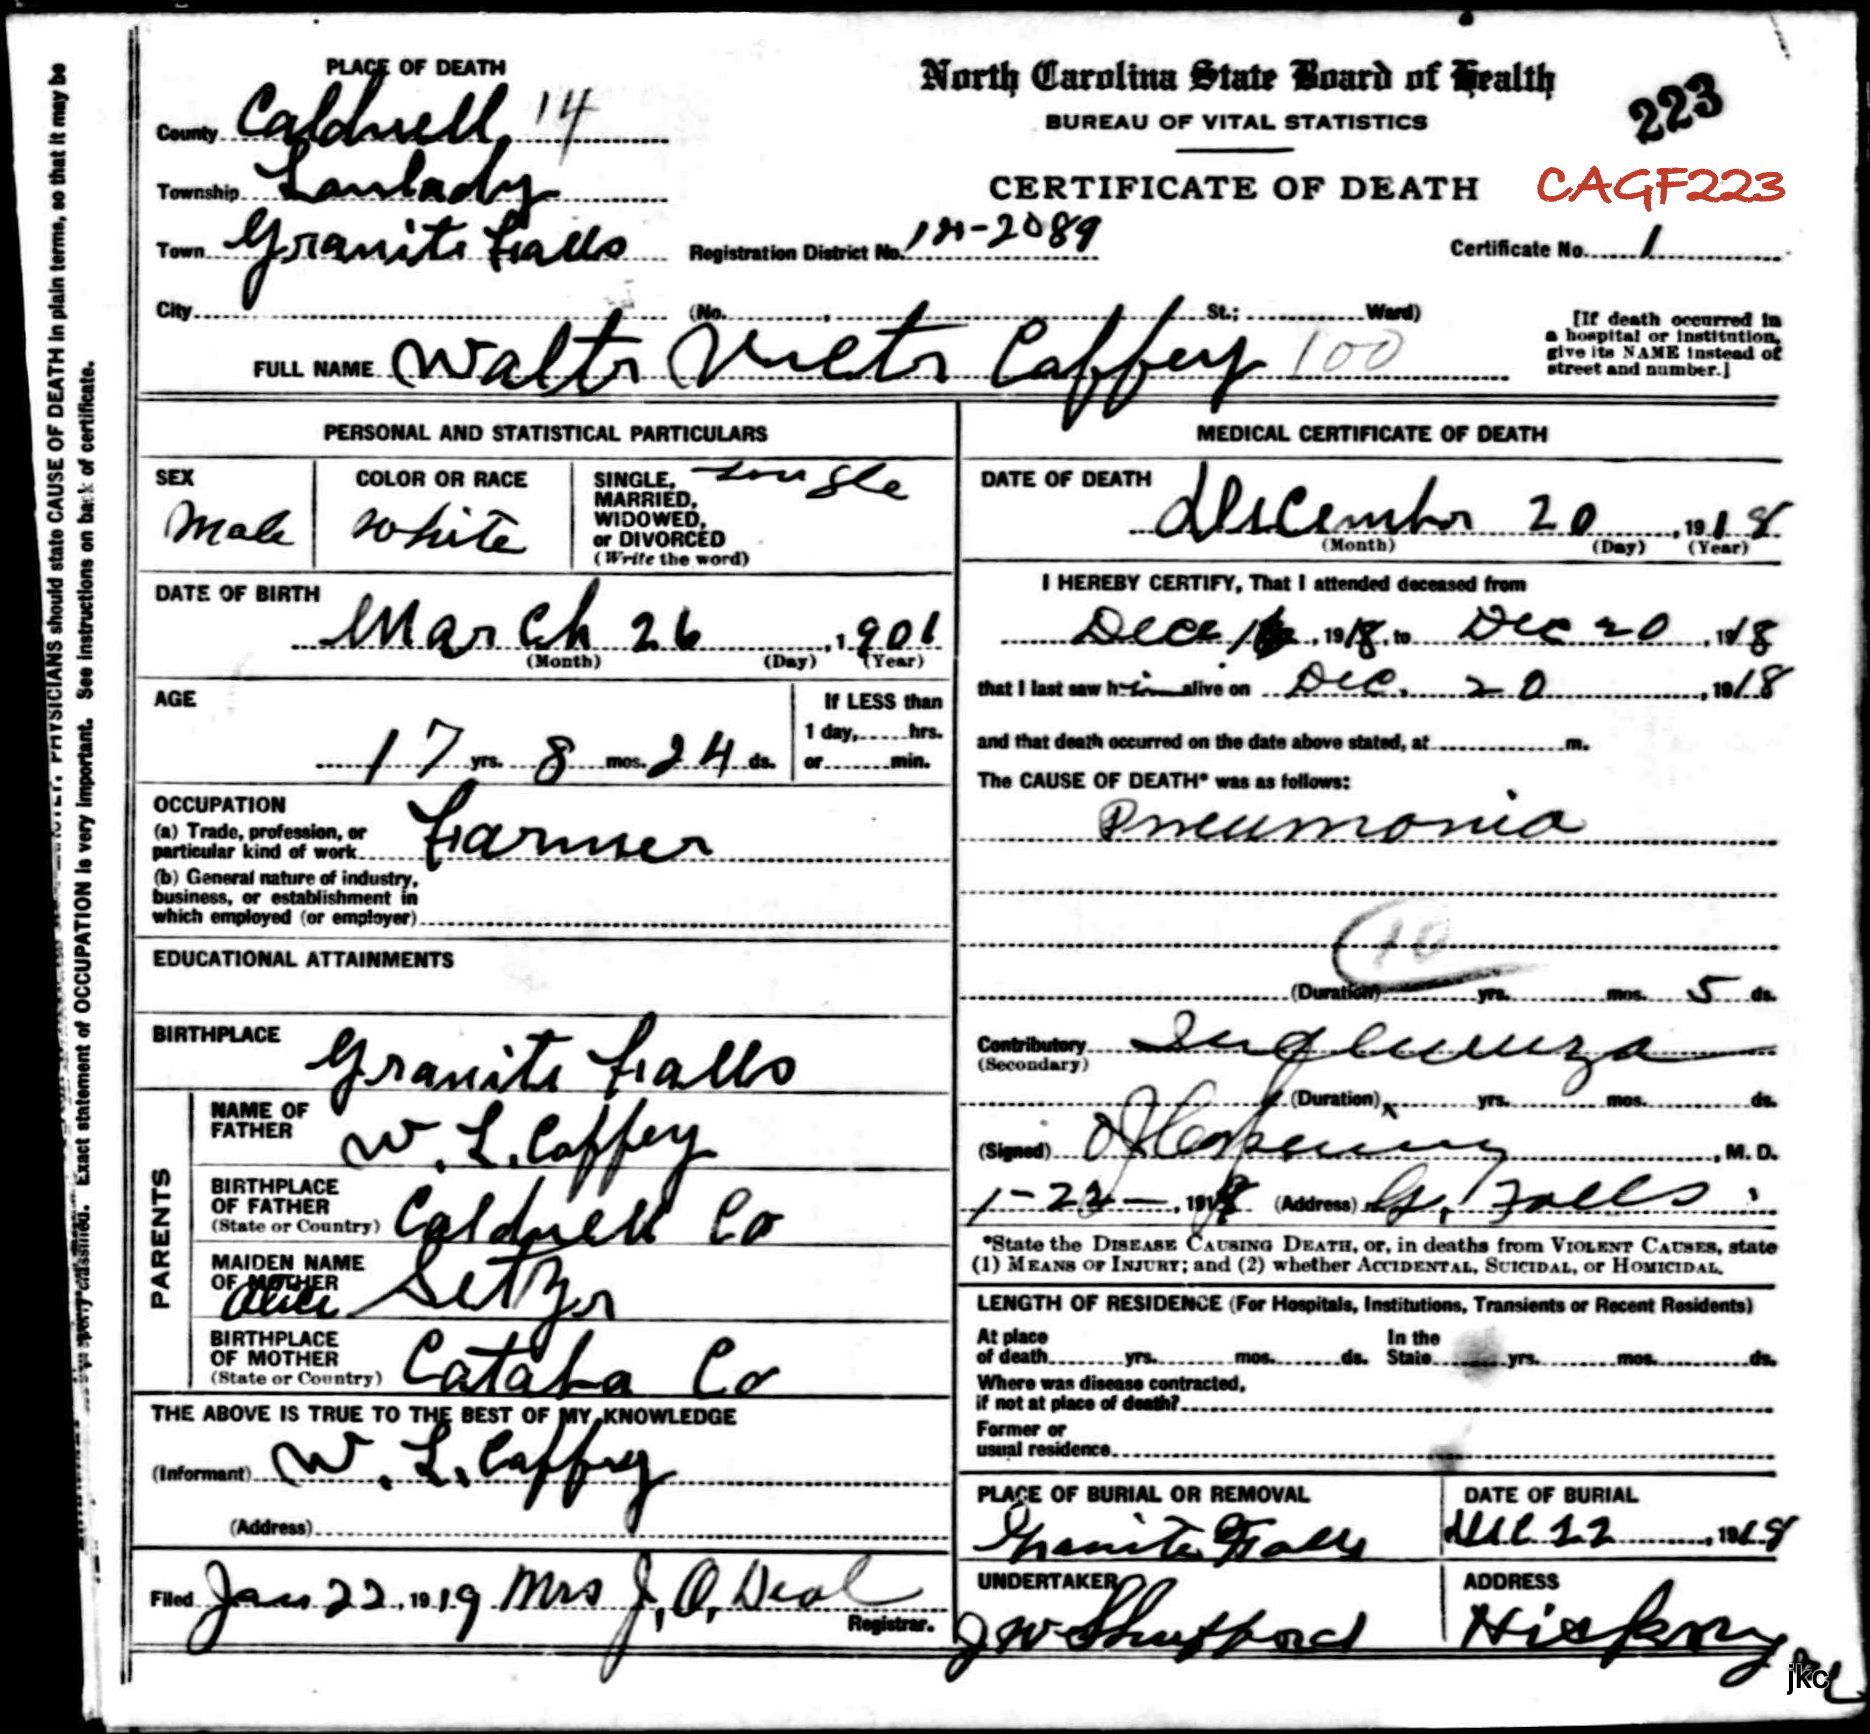 PLACE OF DEATH
County Caldwell 14
Township Lovelady
Town Granite Falls
City (No. , St.; Ward)
North Carolina State Board of Health
BUREAU OF VITAL STATISTICS
CERTIFICATE OF DEATH
223
CAGF223
Registration District No. 14-2089
Certificate No. 1
[If death occurred in
a hospital or institution,
give its NAME instead of
street and number.]
FULL NAME Walter Victor Caffey 100
PERSONAL AND STATISTICAL PARTICULARS
SEX
Male
COLOR OR RACE
White
SINGLE,
MARRIED,
WIDOWED,
or DIVORCED
(Write the word)
Single
DATE OF BIRTH
March 26, 1901
(Month) (Day) (Year)
AGE
17 yrs. 8 mos. 24 ds.
If LESS than
1 day, hrs.
or min.
OCCUPATION
(a) Trade, profession, or
particular kind of work Farmer
(b) General nature of industry,
business, or establishment in
which employed (or employer)
EDUCATIONAL ATTAINMENTS
BIRTHPLACE
Granite Falls
PARENTS
NAME OF
FATHER
W. L. Caffey
BIRTHPLACE
OF FATHER
(State or Country) Caldwell Co
MAIDEN NAME
OF MOTHER
Alice Setzer
BIRTHPLACE
OF MOTHER
(State or Country) Cataba Co
THE ABOVE IS TRUE TO THE BEST OF MY KNOWLEDGE
(Informant) W. L. Caffey
(Address)
Filed Jan 22, 1919 Mrs J. O. Deal
Registrar.
MEDICAL CERTIFICATE OF DEATH
DATE OF DEATH
December 20, 1918
(Month) (Day) (Year)
I HEREBY CERTIFY, That I attended deceased from
Dec 16, 1918, to Dec 20, 1918
that I last saw him alive on Dec. 20, 1918
and that death occurred on the date above stated, at m.
The CAUSE OF DEATH* was as follows:
Pneumonia
10
(Duration) yrs. mos. 5 ds.
Contributory Influenza
(Secondary)
(Duration) yrs. mos. ds.
(Signed) , M. D.
1-22-, 191 (Address) G. Falls
*State the DISEASE CAUSING DEATH, or, in deaths from VIOLENT CAUSES, state
(1) MEANS OF INJURY; and (2) whether ACCIDENTAL, SUICIDAL, or HOMICIDAL.
LENGTH OF RESIDENCE (For Hospitals, Institutions, Transients or Recent Residents)
At place
of death yrs. mos. ds.
In the
State yrs. mos. ds.
Where was disease contracted,
if not at place of death?
Former or
usual residence
PLACE OF BURIAL OR REMOVAL
Granite Falls
DATE OF BURIAL
Dec 22, 1918
UNDERTAKER
J W Shufford
ADDRESS
Hickory
N C
jkc
PHYSICIANS should state CAUSE OF DEATH in plain terms, so that it may be
classified. Exact statement of OCCUPATION is very important. See instructions on back of certificate.